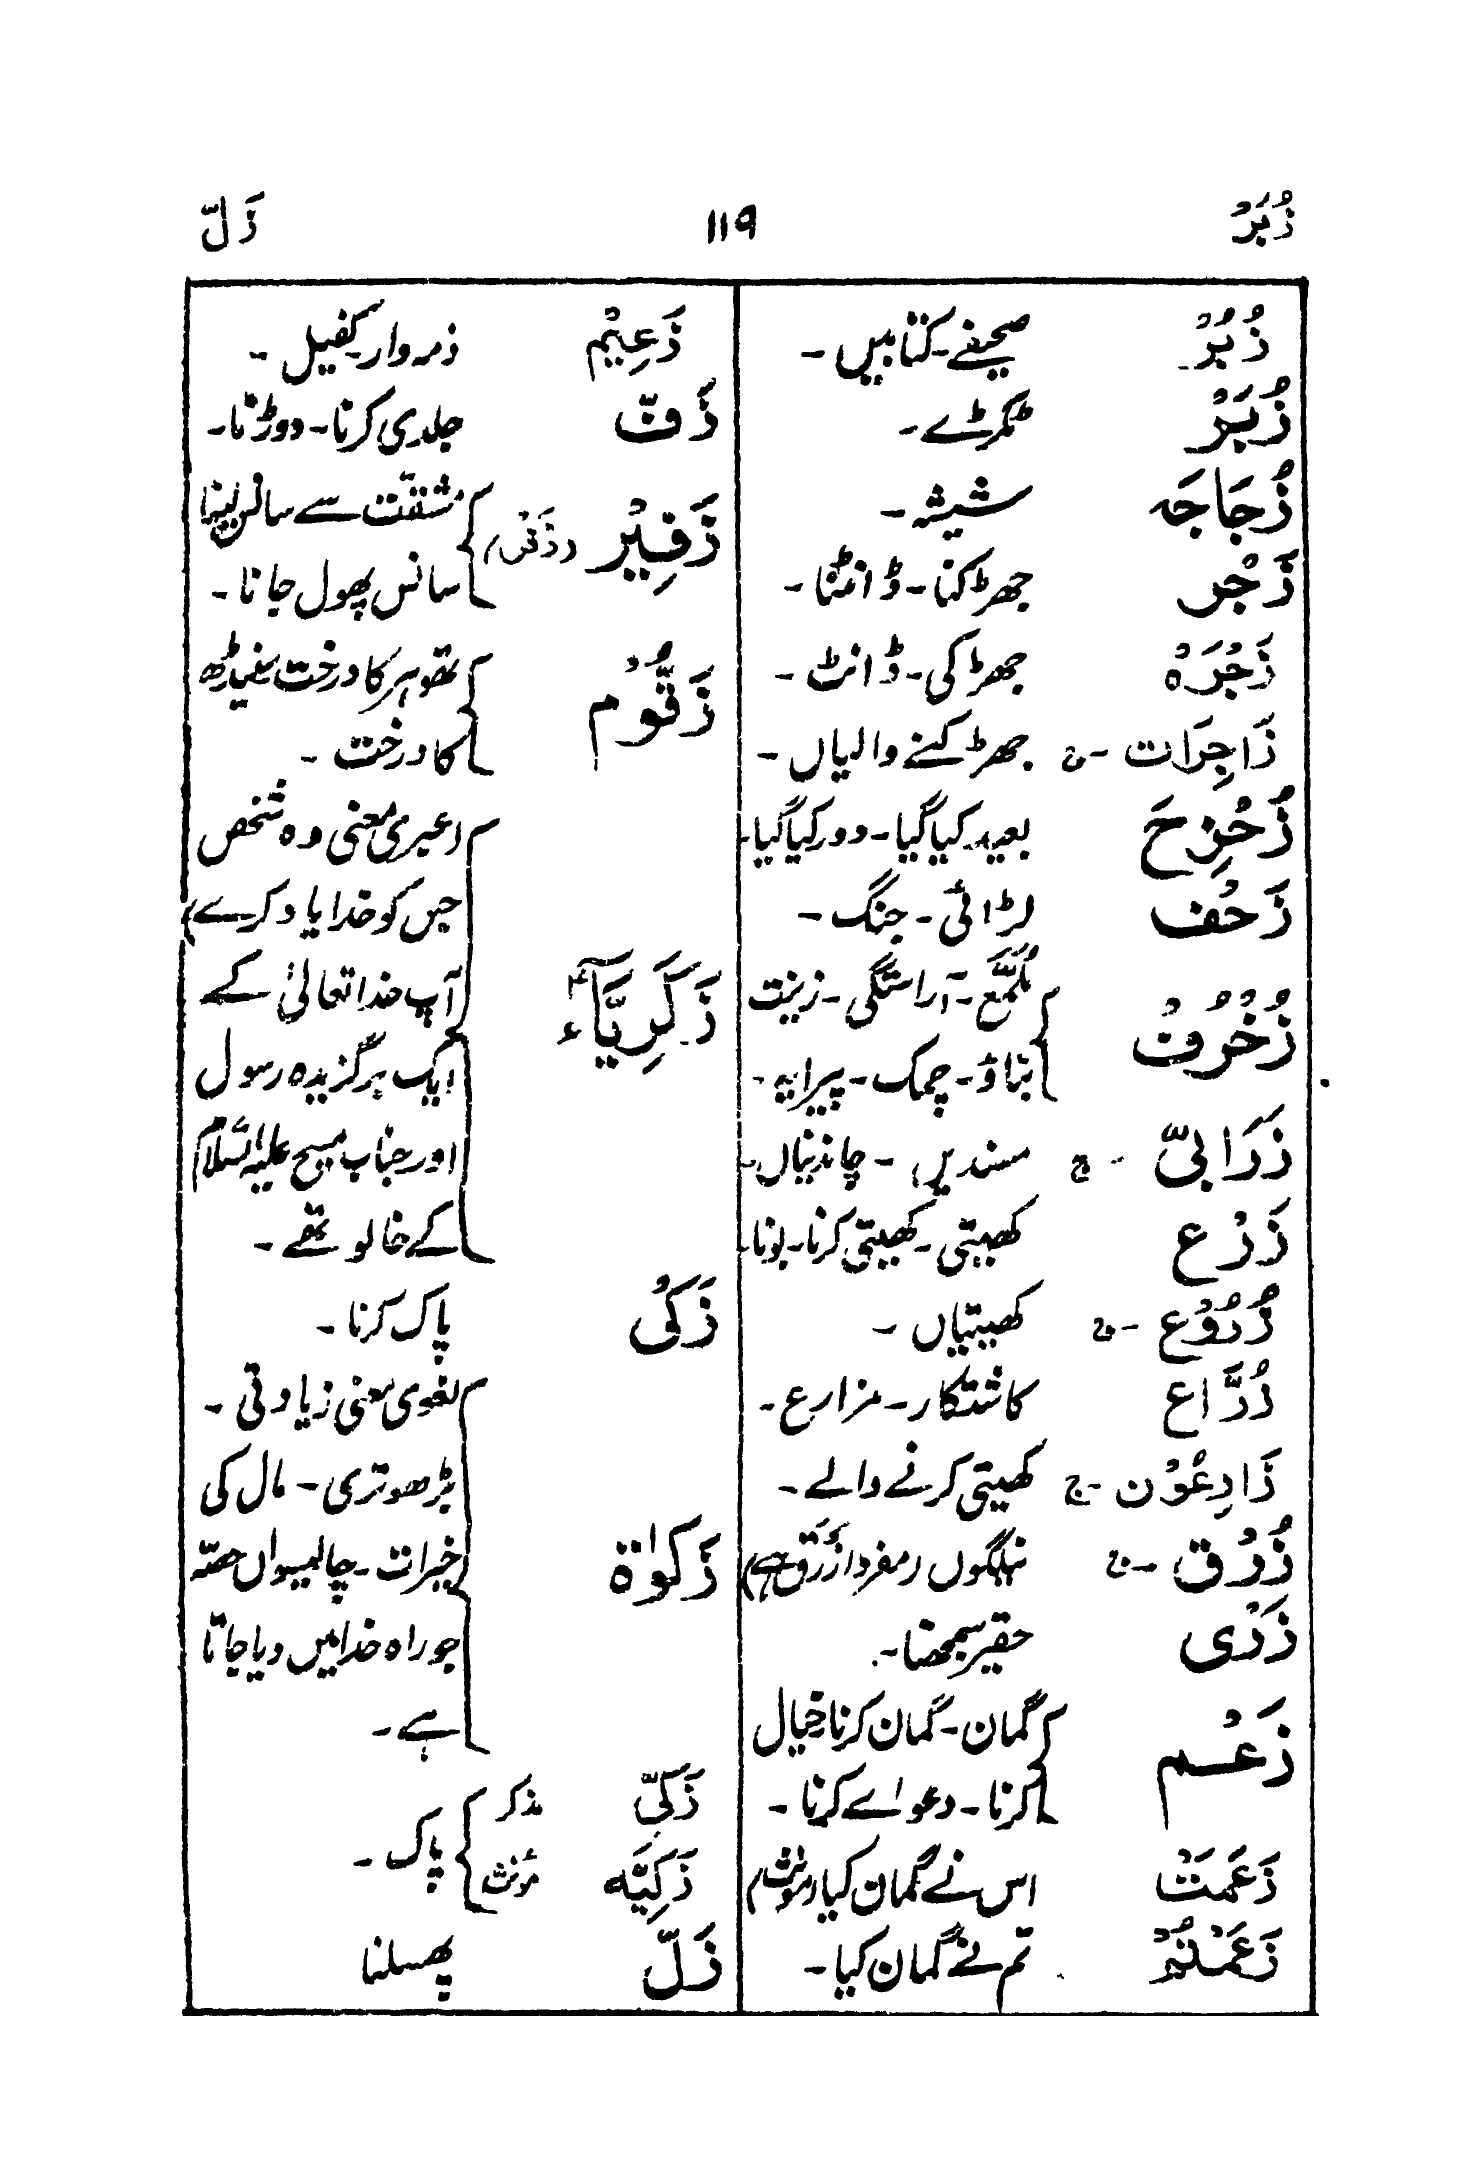 زُبَرْ ۱۱۹ زَلّ
زُبُرْ صحیفے۔ کتابیں۔
زُبَرْ ٹکڑے۔
زُجَاجَہ شیشہ۔
زَجْر جھڑکنا۔ ڈانٹنا۔
زَجْرَہْ جھڑکی۔ ڈانٹ۔
زَاجِرَات -ج جھڑکنے والیاں۔
زُحْزِحَ بعید کیا گیا۔ دور کیا گیا۔
زَحْف لڑائی۔ جنگ۔
زُخْرُفْ { مُلَمَّع۔ آراستگی۔ زینت
بناؤ۔ چمک۔ پیرایہ۔
زَرَابیّ -ج مسندیں۔ چاندنیاں۔
زَرْع کھیتی۔ کھیتی کرنا۔ بونا۔
زُرُوْع -ج کھیتیاں۔
زُرَّاع کاشتکار۔ مزارع۔
زَارِعُوْن -ج کھیتی کرنے والے۔
زُرْق -ج نیلگوں (مفرد اَزْرَق ہے)
زَرْی حقیر سمجھنا۔
زَعْم { گمان۔ گمان کرنا خیال
کرنا۔ دعوائے کرنا۔
زَعَمَتْ اس نے گمان کیا (مونث)
زَعَمْتُمْ تم نے گمان کیا۔
زَعِیْم ذمہ وار۔ کفیل۔
زَفّ جلدی کرنا۔ دوڑنا۔
زَفِیْر (زَفْر) { مشقّت سے سانس لینا
سانس پھول جانا۔
زَقُّوْم { تھوہر کا درخت سینڈھ
کا درخت۔
زَکَرِیَّاء { (عبری معنی وہ شخص
جس کو خدا یاد کرے)
آپ خدا تعالیٰ کے
ایک برگزیدہ رسول
اور جناب مسیح علیہ السّلام
کے خالو تھے۔
زَکْیُ پاک کرنا۔
زَکوٰۃ { لغوی معنی زیادتی۔
بڑھوتری۔ مال کی
خیرات۔ چالیسواں حصّہ
جو راہ خدا میں دیا جاتا
ہے۔
زَکیّ مذکر { پاک۔
زَکِیَّہ مونث
زَلّ پھسلنا